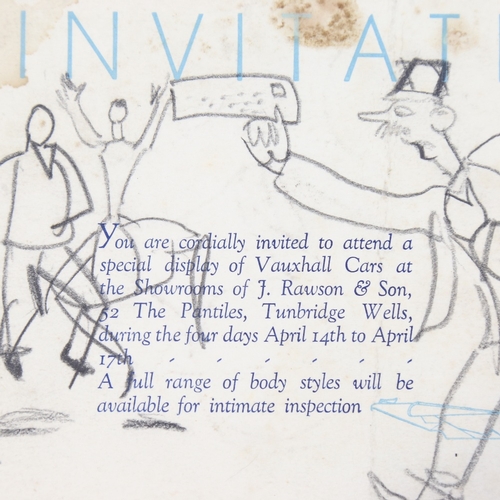 INVITATI
You are cordially invited to attend a
special display of Vauxhall Cars at
the Showrooms of J. Rawson & Son,
52 The Pantiles, Tunbridge Wells,
during the four days April 14th to April
17th - - - - - -
A full range of body styles will be
available for intimate inspection